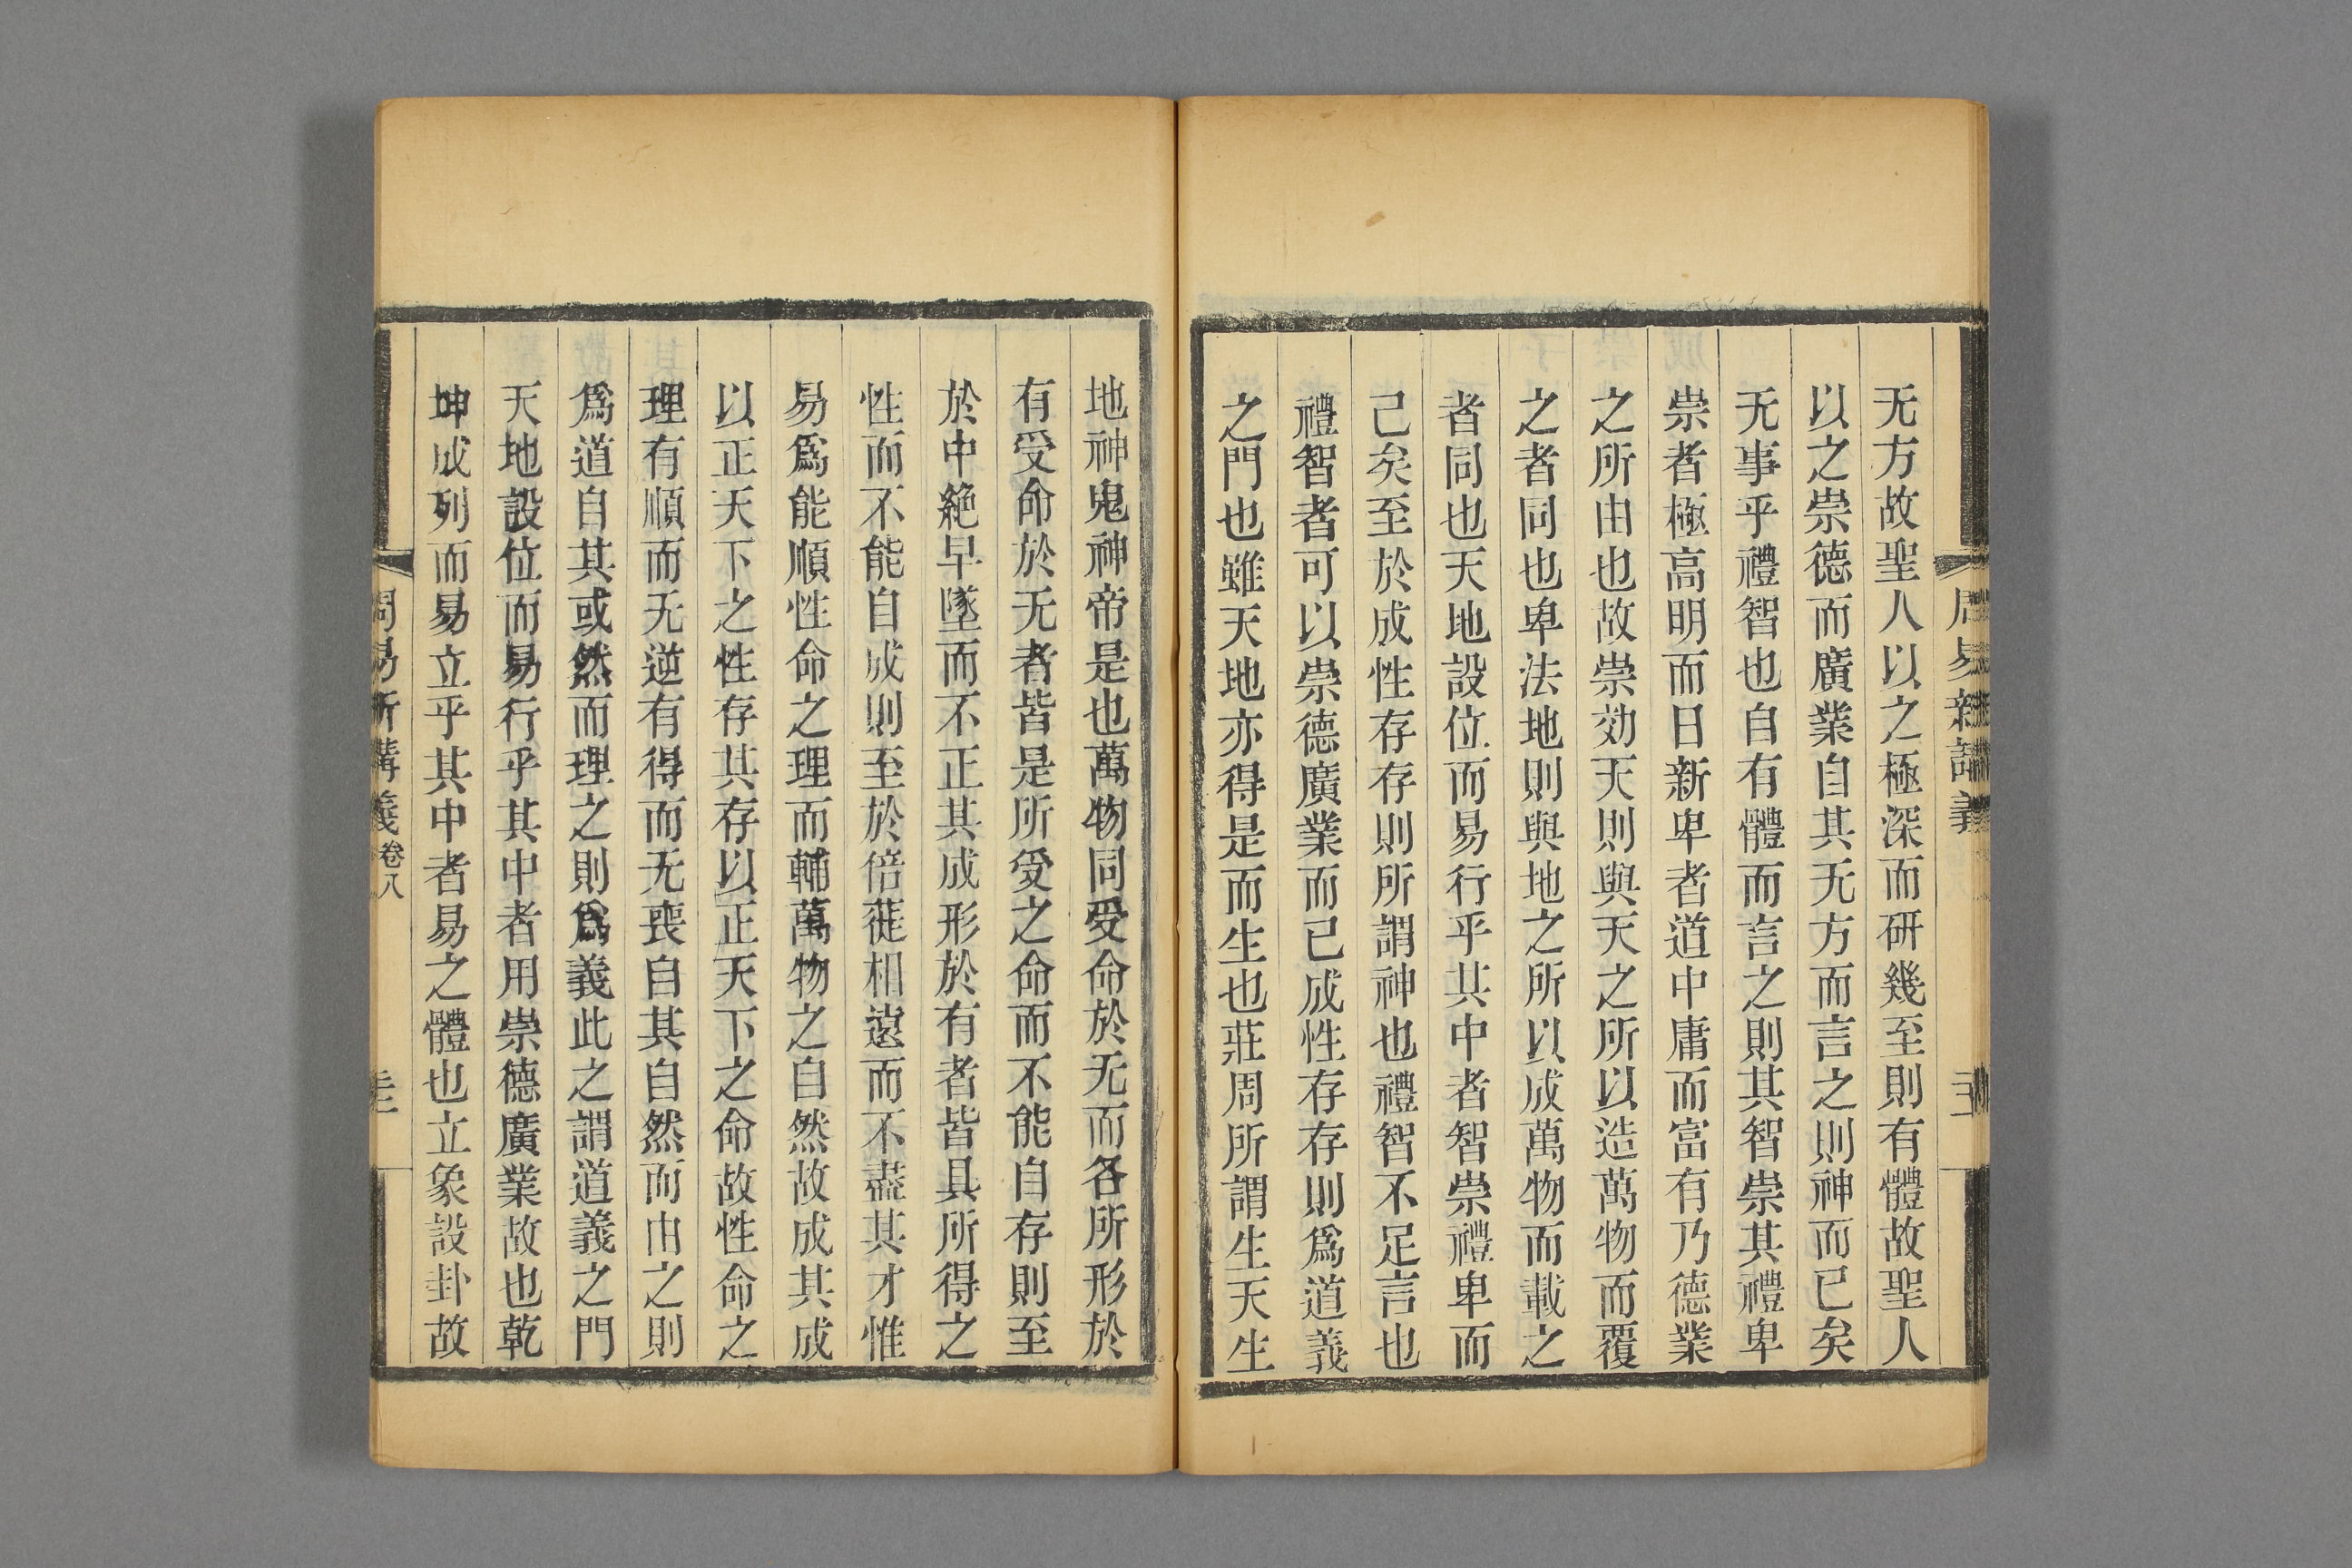 周易新講義
无方故聖人以之極深而研幾至則有體故聖人
以之崇德而廣業自其无方而言之則神而已矣
无事乎禮智也自有體而言之則其智崇其禮卑
崇者極高明而日新卑者道中庸而富有乃德業
之所由也故崇効天則與天之所以造萬物而覆
之者同也卑法地則與地之所以成萬物而載之
者同也天地設位而易行乎其中者智崇禮卑而
己矣至於成性存存則所謂神也禮智不足言也
禮智者可以崇德廣業而已成性存存則爲道義
之門也雖天地亦得是而生也莊周所謂生天生
地神鬼神帝是也萬物同受命於无而各所形於
有受命於无者皆是所受之命而不能自存則至
於中絶早墜而不正其成形於有者皆具所得之
性而不能自成則至於倍蓰相遠而不盡其才惟
易爲能順性命之理而輔萬物之自然故成其成
以正天下之性存其存以正天下之命故性命之
理有順而无逆有得而无喪自其自然而由之則
爲道自其或然而理之則爲義此之謂道義之門
天地設位而易行乎其中者用崇德廣業故也乾
坤成列而易立乎其中者易之體也立象設卦故
周易新講義卷八